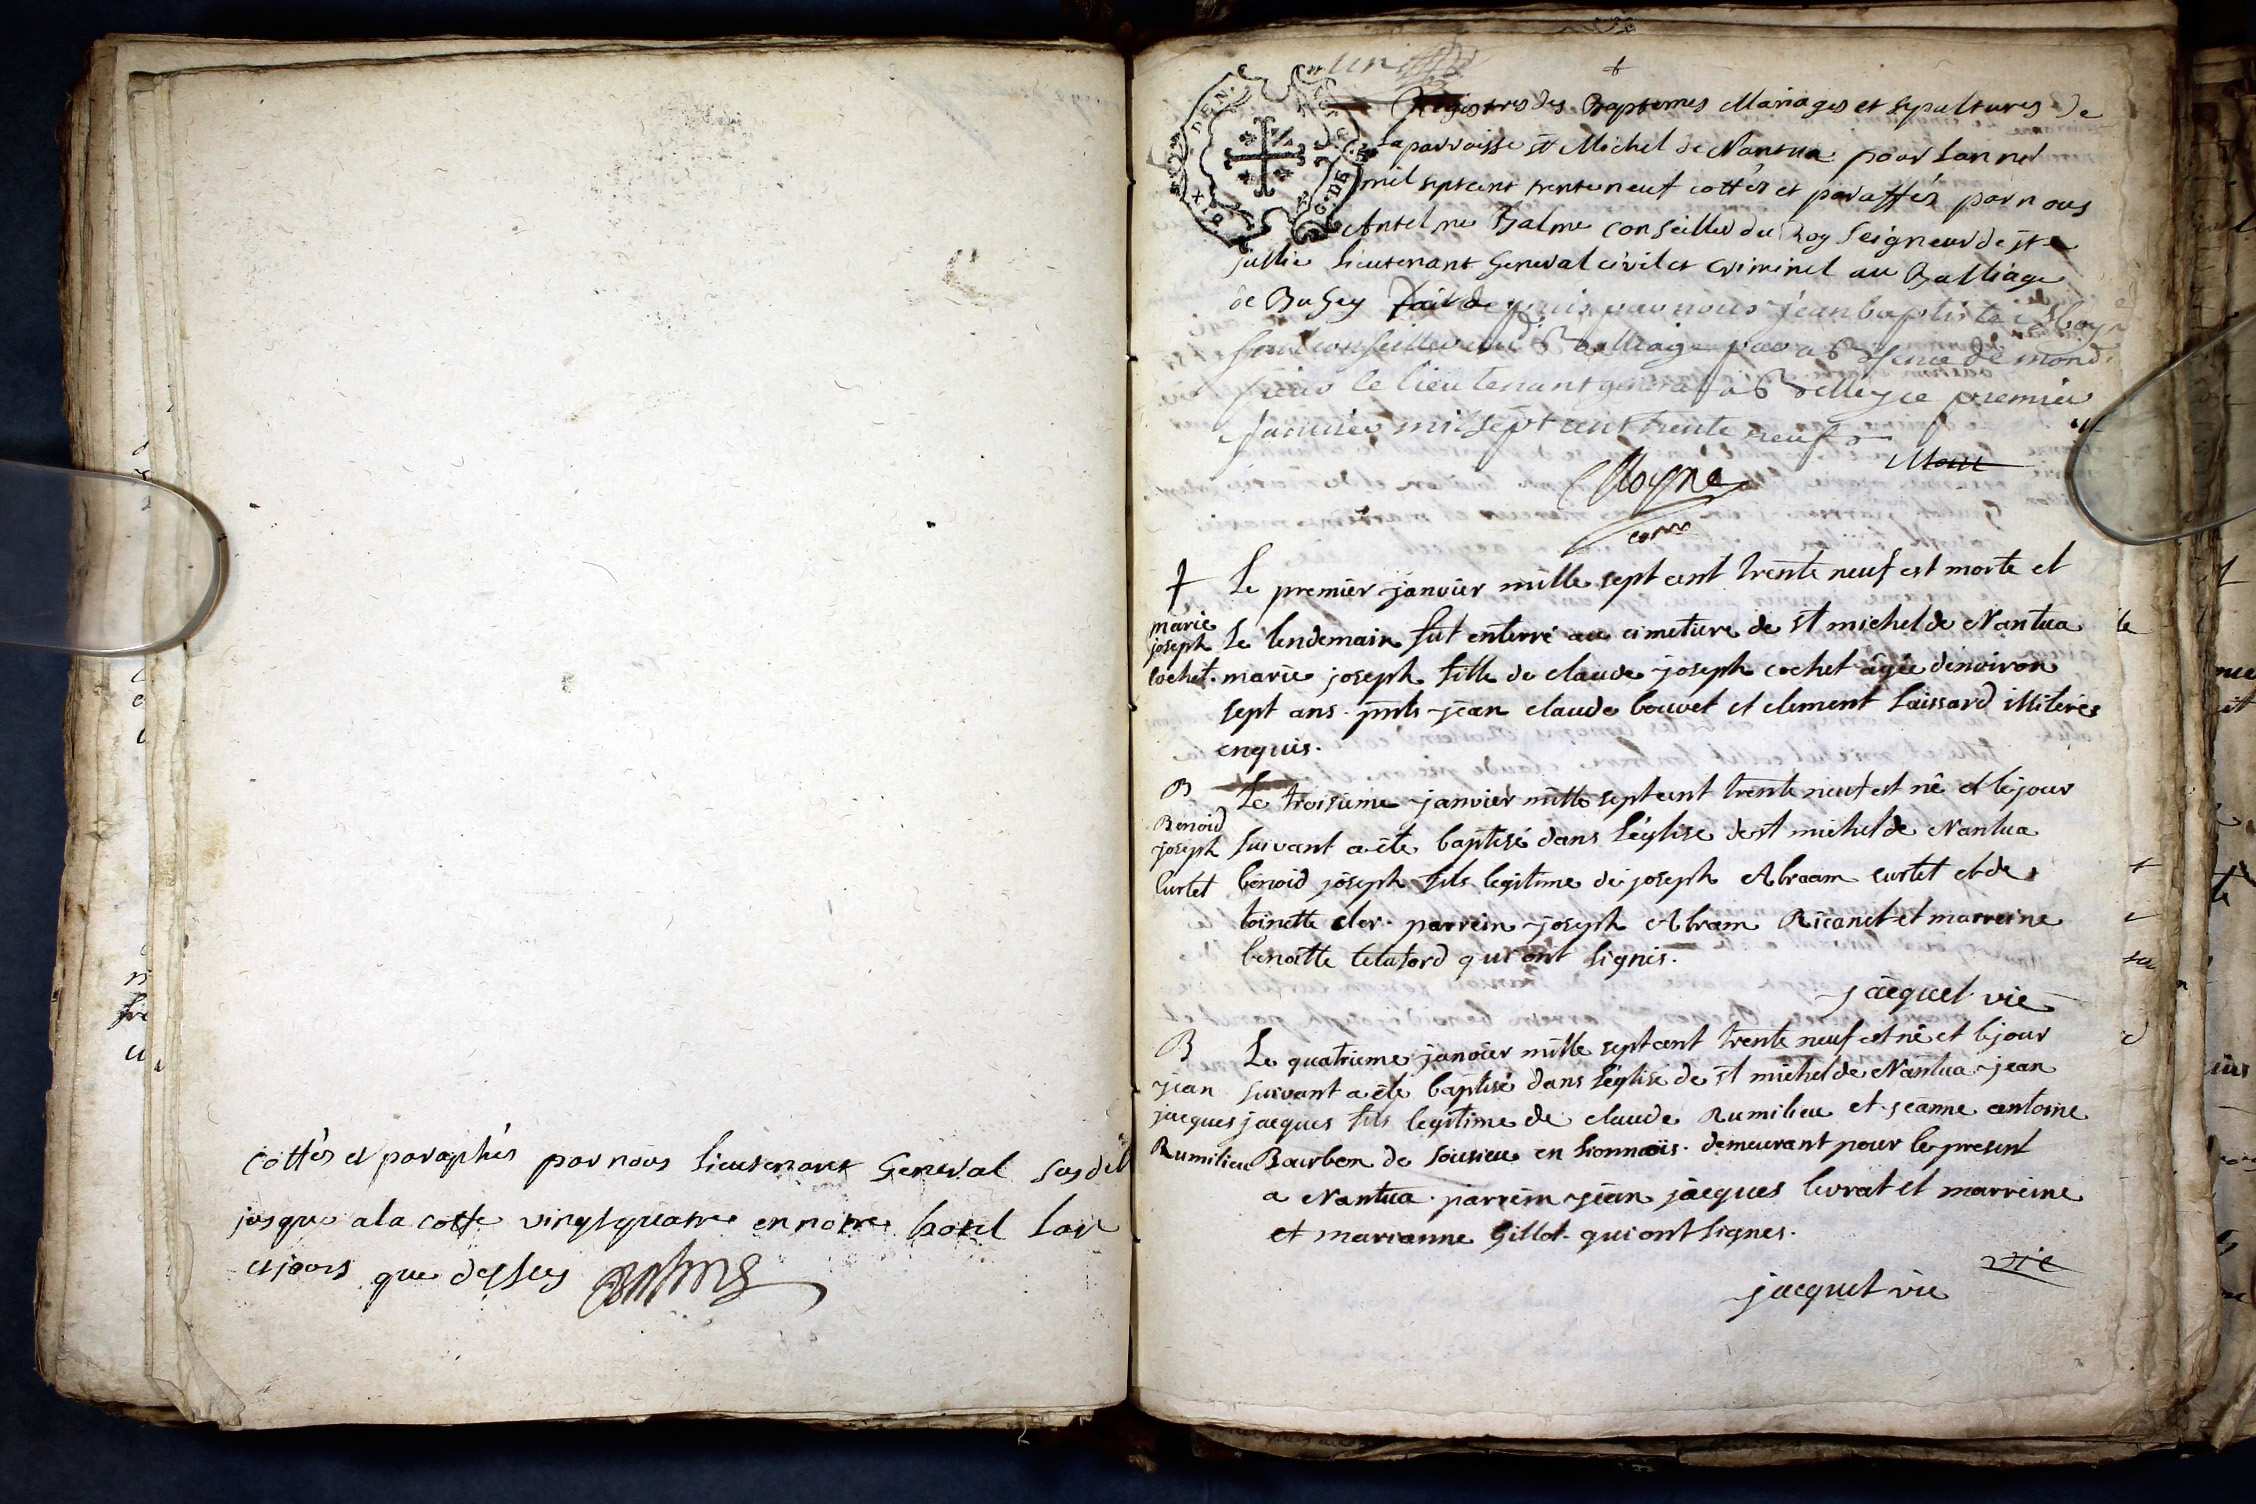 cottés et paraphés par nous Lieutenant General susdit
jusque a la cotte vingt quatre en notre hotel l'an
et jours que dessus
Registres des Baptemes Mariages et sepultures de
la parroisse st Michel de Nantua pour l'année
mil septcent trente neuf cottés et paraffés par nous
Antelme Balme Conseiller du Roy Seigneur de ste
jullie Lieutenant General civil et criminel au Balliage
de Bugey par nous jean baptiste Moyne
conseiller au Balliage par absence de mond.
sieur le lieutenant general a Belley ce premier
Janvier mil sept cent trente neuf
Moyne
†
marie
joseph
Cochet.
Le premier janvier mille sept cent trente neuf est morte et
Le lendemain fut enterré au cimetiere de st michel de Nantua
marie joseph fille de claude joseph cochet âgée d'environ
sept ans. pnts jean claude bouvet et clement Laissard illiterés
enquis.
B
Benoid
joseph
Curtet
Le troisieme janvier mille septcent trente neuf est né et le jour
suivant a été baptisé dans l'église de st michel de Nantua
bénoid joseph fils legitime de joseph Abraam curtet et de
toinette cler. parrein joseph Abram Ricanet et marreine
benoitte qui ont signés.
jacquet vic
B
jean
jacques
Rumilieu
Le quatrieme janvier mille septcent trente neuf est né et le jour
suivant a été baptisé dans l'église de st michel de Nantua jean
jacques fils legitime de claude Rumilieu et jeanne antoine
Bourbon de Sousieu en Lionnois. demeurant pour le present
a Nantua. parrein jean jacques Levrat et marreine
et marianne Gillot. qui ont signes.
vic
jacquet vic